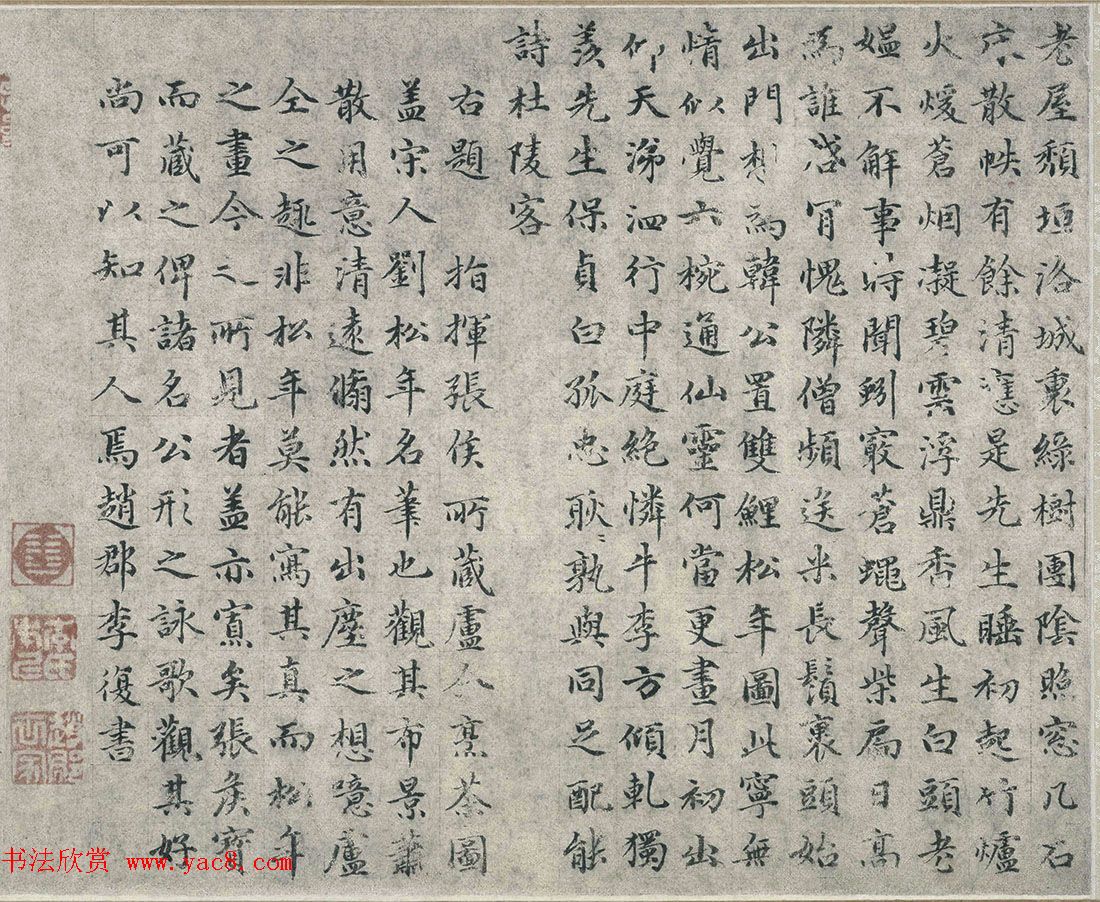 老屋頹垣洛城裏綠樹團陰照窓几石
床散帙有餘清應是先生睡初起竹爐
火煖蒼烟凝碧雲浮鼎香風生白頭老
媼不解事時聞蚓竅蒼蠅聲柴扃日高
為誰啓肎愧隣僧頻送米長鬚裹頭始
出門想為韓公置雙鯉松年圖此寧無
情似覺六椀通仙靈何當更畫月初出
仰天涕泗行中庭絕憐牛李方傾軋獨
羨先生保貞白孤忠耿〻孰與同足配能
詩杜陵客
右題 指揮張侯所藏盧仝烹茶圖
盖宋人劉松年名筆也觀其布景蕭
散用意清遠翛然有出塵之想噫盧
仝之趣非松年莫能寫其真而松年
之畫今之所見者盖亦寡矣張侯寶
而藏之俾諸名公形之詠歌觀其好
尚可以知其人焉趙郡李復書
书法欣赏 www.yac8.com